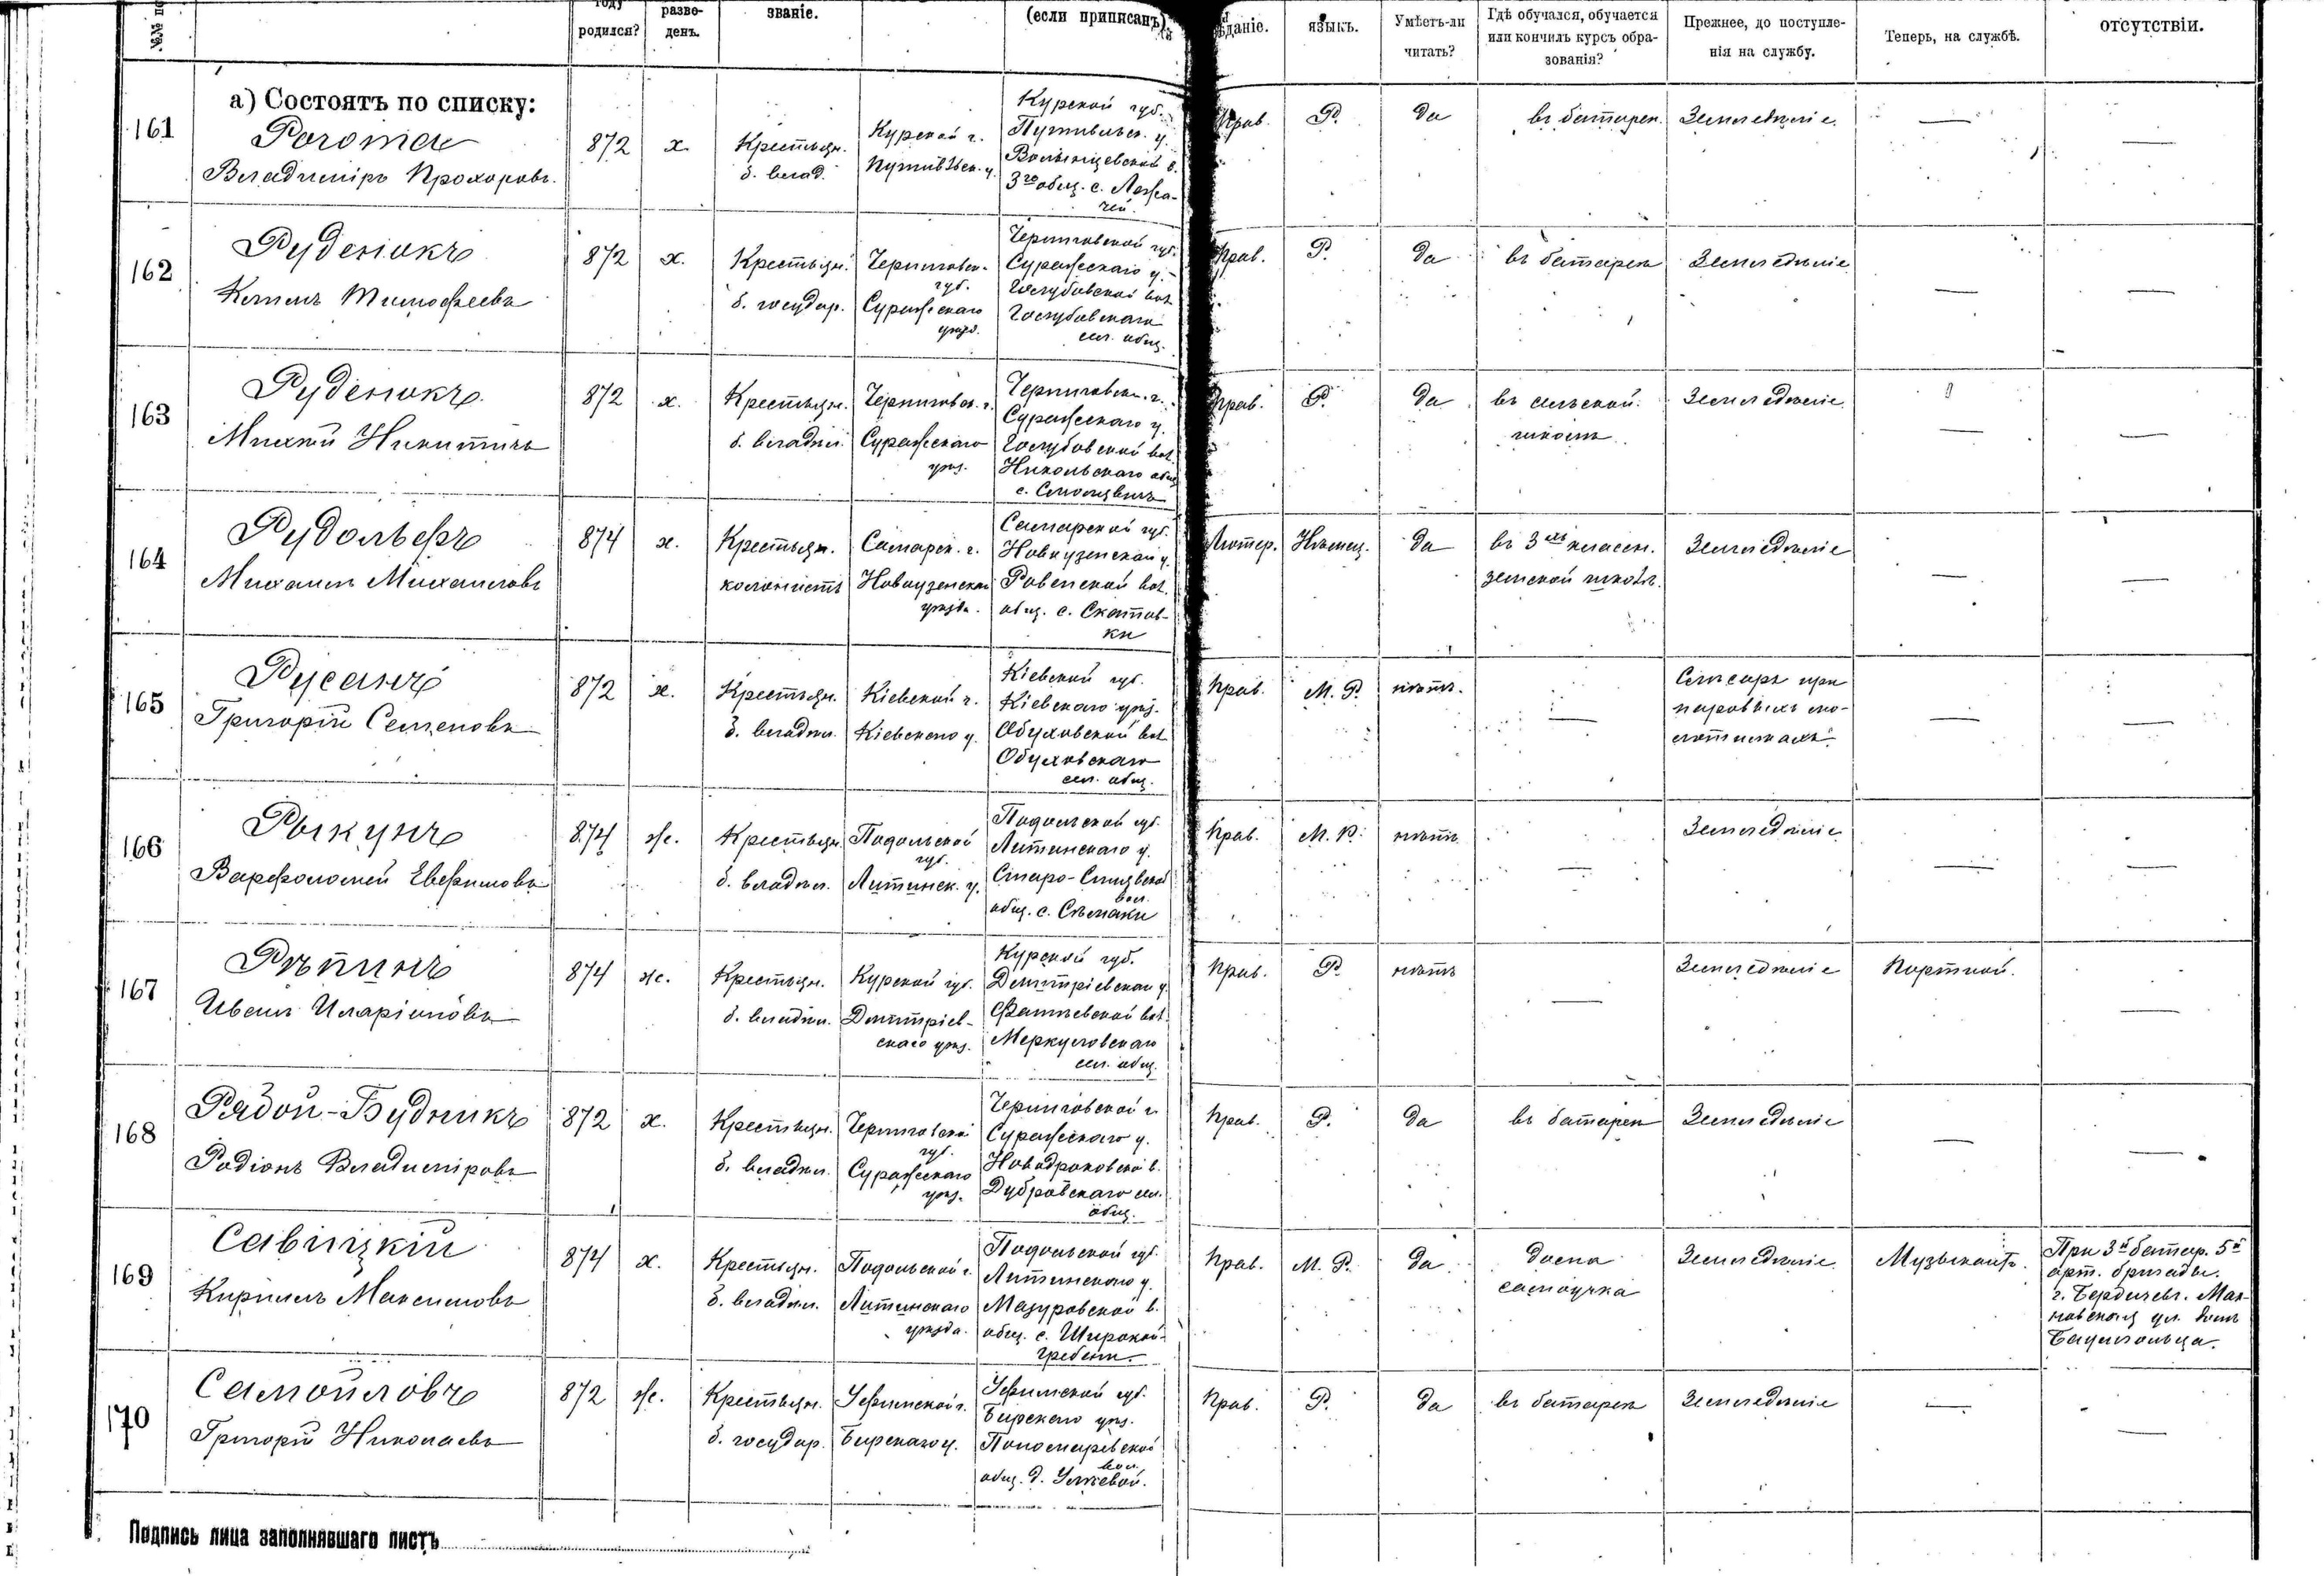 году родился?
разве-
денъ.
званіе.
(если приписанъ)
языкъ.
Умѣетъ-ли
читать?
Гдѣ обучался, обучается
или кончилъ курсъ обра-
зованія?
Прежнее, до поступле-
нія на службу.
Теперь, на службѣ.
отсутствіи.
а) Состоятъ по списку:
161
Владиміръ Прохоровъ.
872
х.
Крестьян.
б. влад.
Курской г.
Путивльск. у.
Курской губ.
Путивльск. у.
3го общ. с.
Прав.
Р.
да
въ батареи.
Земледѣліе.
—
—
162
Руденокъ
Тимофеевъ
872
х.
Крестьян.
б. государ.
Черниговск.
губ.
Суражскаго
уѣзд.
Черниговской губ.
Суражскаго у.
Голубовской вол.
Голубовскаго
сел. общ.
Прав.
Р.
да
въ батареи
Земледѣліе
—
—
163
Руденокъ
Михей Никитинъ
872
х.
Крестьян.
б. владѣл.
Черниговск. г.
Суражскаго
уѣз.
Черниговск. г.
Суражскаго у.
Голубовской вол.
Никольскаго общ.
с.
Прав.
Р.
да
въ сельской
школѣ
Земледѣліе.
—
—
164
Рудольфъ
Михаилъ Михаиловъ
874
х.
Крестьян.
колонистъ
Самарск. г.
Новоузенскаго
уѣзда.
Самарской губ.
Новоузенскаго у.
Ровенской вол.
общ. с. Скатов-
ки
Лютер.
Нѣмец.
да
въ 3хъ класен.
земской школѣ.
Земледѣліе
—
—
165
Русанъ
Григорій Семеновъ
872
х.
Крестьян.
б. владѣл.
Кіевской г.
Кіевскаго у.
Кіевской губ.
Кіевскаго уѣз.
Обуховской вол.
Обуховскаго
сел. общ.
Прав.
М. Р.
нѣтъ.
—
Слесарь при
паровыхъ мо-
лотилкахъ.
—
—
166
Рыкунъ
Варфоломей Евфимовъ
874
ж.
Крестьян.
б. владѣл.
Подольской
губ.
Литинск. у.
Подольской губ.
Литинскаго у.
Старо-Синявской
вол.
общ. с. Сѣмаки
Прав.
М. Р.
нѣтъ
—
Земледѣліе
—
—
167
Рѣпинъ
Иванъ Иларіоновъ
874
ж.
Крестьян.
б. владѣл.
Курской губ.
Дмитріев-
скаго уѣз.
Курской губ.
Дмитріевскаго у.
Фатѣевской вол.
Меркуловскаго
сел. общ.
Прав.
Р.
нѣтъ
—
Земледѣліе
Портной.
—
168
Рядой-Будникъ
Родіонъ Владиміровъ
872
х.
Крестьян.
б. владѣл.
Черниговской
губ.
Суражскаго
уѣз.
Черниговской г.
Суражскаго у.
Новодроковской в.
Дубровскаго сел.
общ.
Прав.
Р.
да
въ батареи
Земледѣліе
—
—
169
Савіцкій
Кирилъ Максимовъ
874
х.
Крестьян.
б. владѣл.
Подольской г.
Литинскаго
уѣзда.
Подольской губ.
Литинскаго у.
Мазуровской в.
общ. с. Широкой-
гребли.
Прав.
М. Р.
да
дома
самоучка
Земледѣліе
Музыкантъ.
При 3й батар. 5й
арт. бригады.
г. Бердичевъ. Мах-
новская ул. домъ
170
Самойловъ
Григорій Николаевъ
872
ж.
Крестьян.
б. государ.
Уфимской г.
Бирскаго у.
Уфимской губ.
Бирскаго уѣз.
Пономаревской
вол.
общ. д.
Прав.
Р.
да
въ батареи
Земледѣліе
—
—
Подпись лица заполнявшаго листъ